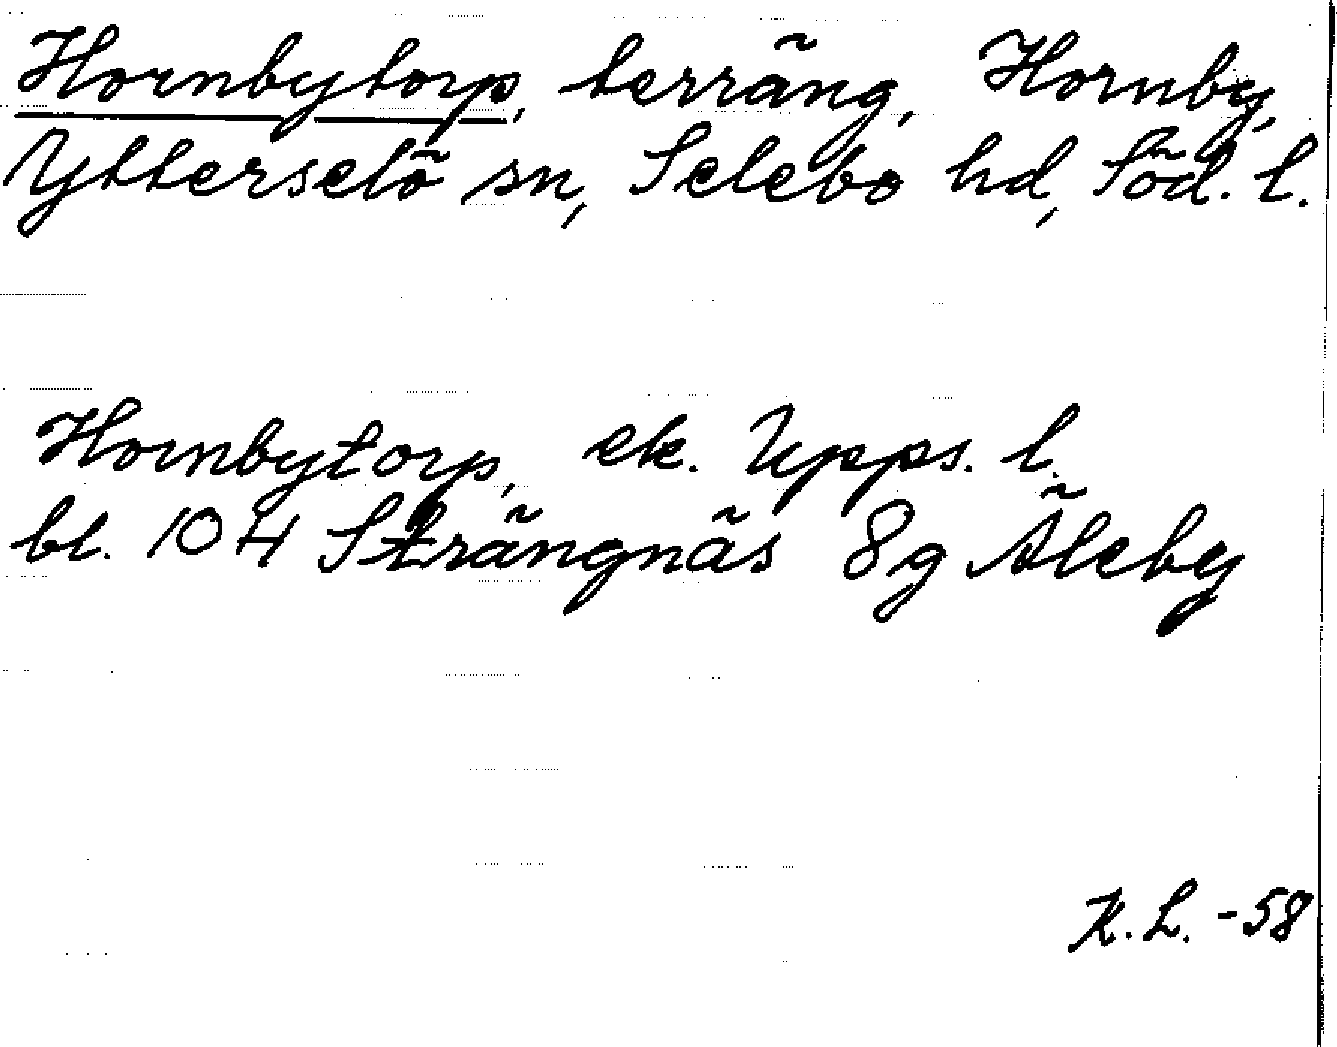 Hornbytorp, terräng, Hornby,
Ytterselö sn, Selebo hd, Söd. l.
Hornbytorp, ek. Upps. l.
bl. 104 Strängnäs 8g Äleby
K.L. -58